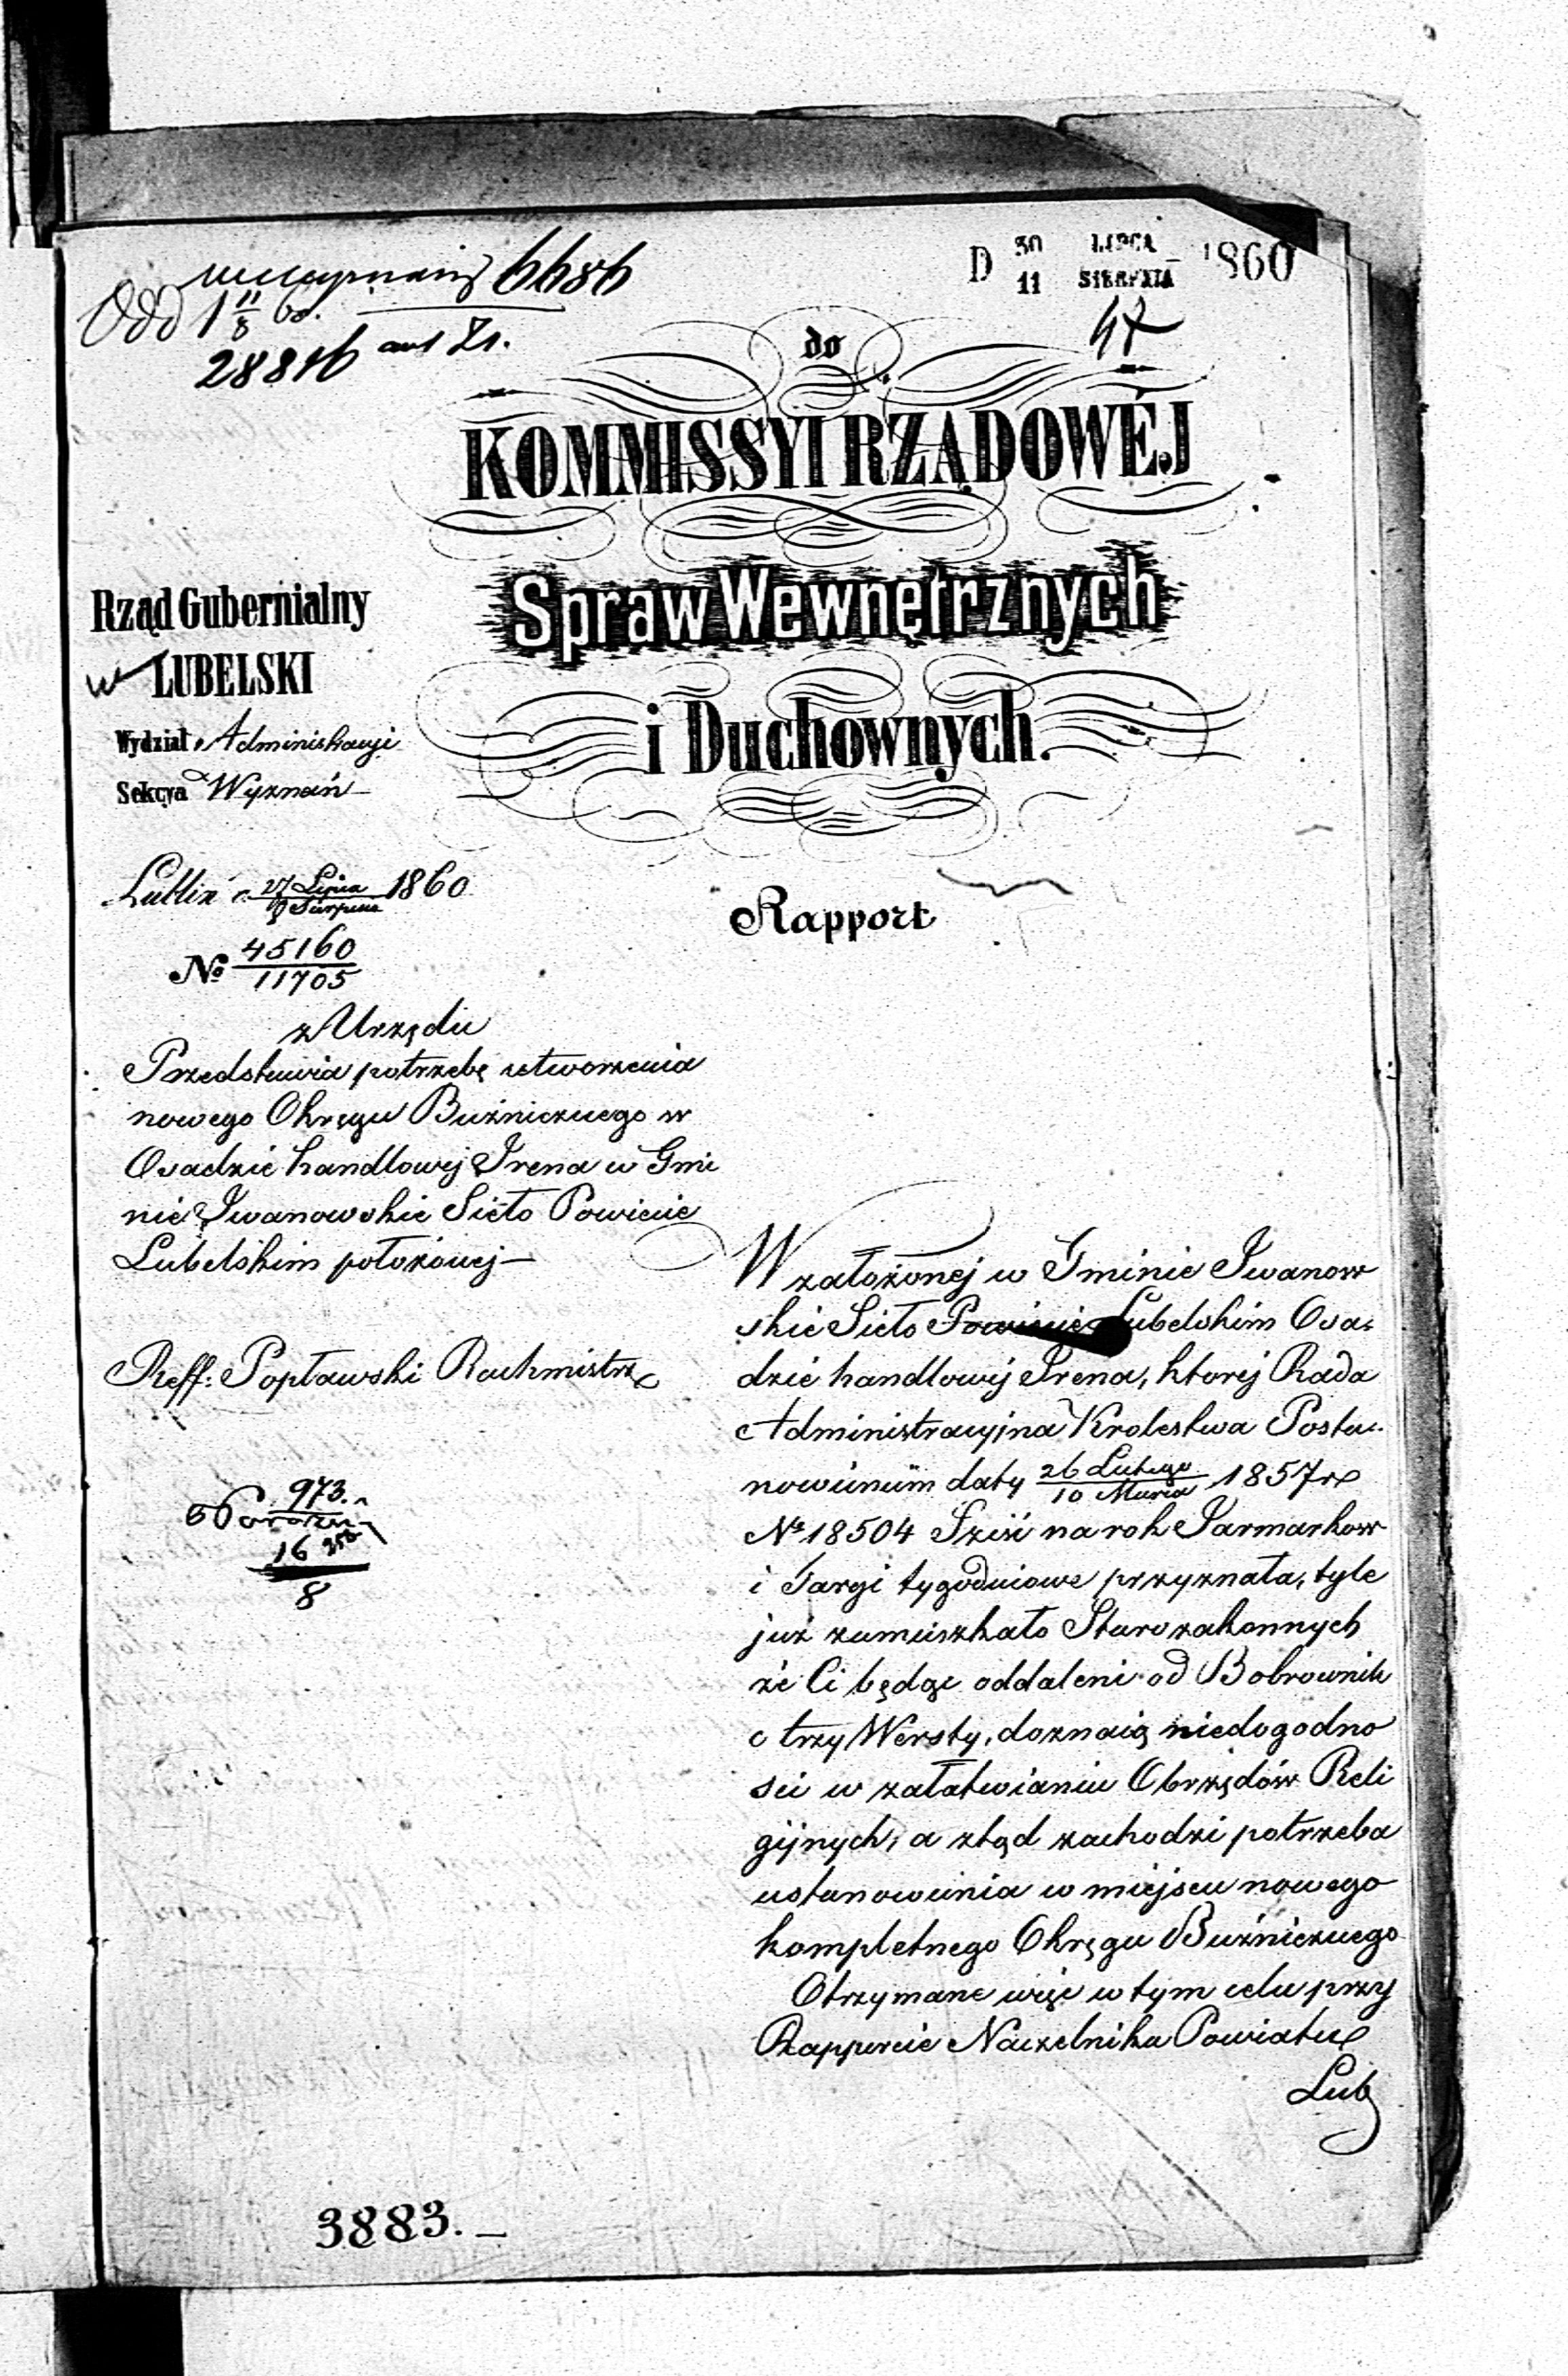 6686
Odd 1 11/8 60.
28816
D 30 LIPCA 1860
11 SIERPNIA
47
do
KOMMISSYI RZĄDOWÉJ
Spraw Wewnętrznych
i Duchownych.
Rząd Gubernialny
w LUBELSKI
Wydział Administracyi
Sekcya Wyznań
Lublin d. 27 Lipca 1860
8 Sierpnia
No 45160
11705
z Urzędu
Przedstawia potrzebę utworzenia
nowego Okręgu Bużnicznego w
Osadzie handlowej Irena w Gmi
nie Iwanowskie Sieło Powiecie
Lubelskim położonej—
Reff: Popławski Rachmistrz
973.
16
8
Rapport
W założonej w Gminie Iwanow
skie Sieło Powiecie Lubelskim Osa-
dzie handlowej Irena, ktorej Rada
Administracyjna Krolestwa Posta-
nowieniem daty 26 Lutego 1857 r
10 Marca
No 18504 Sześć na rok Jarmarkow
i Targi tygodniowe przyznała, tyle
już zamieszkało Starozakonnych
że Ci będąc oddaleni od Bobrownik
o trzy Wersty, doznaią niedogodno
sci w załatwianiu Obrzędów Reli
gijnych, a ztąd zachodzi potrzeba
ustanowienia w miejscu nowego
kompletnego Okręgu Bużniczuego
Otrzymane więc w tym celu przy
Rapporcie Naczelnika Powiatu
Lub
3883.—